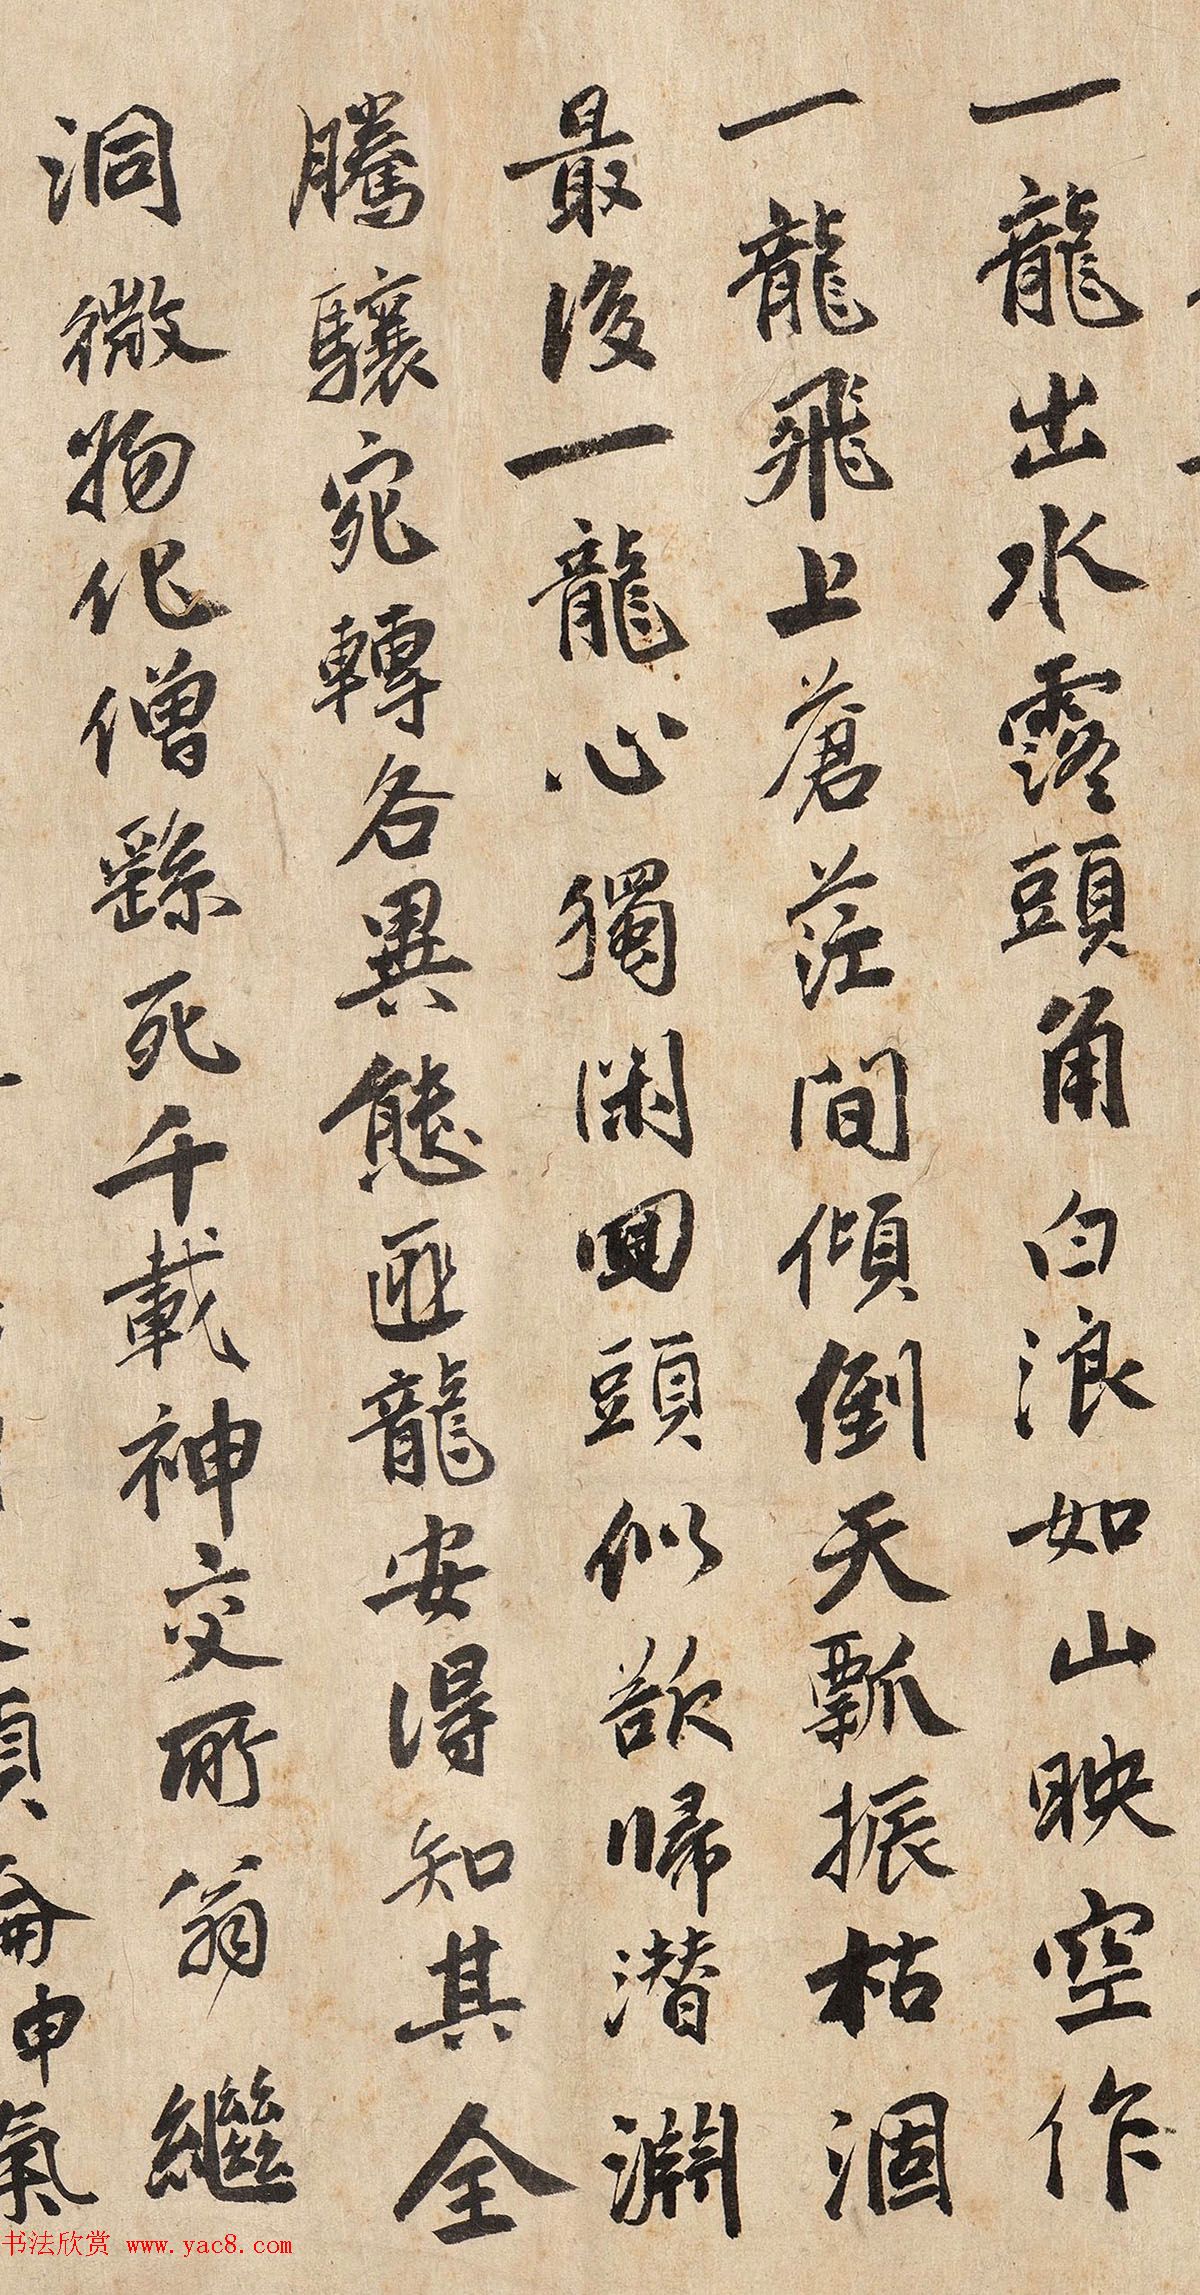 一龍出水露頭角白浪如山映空作
一龍飛上蒼茫間傾倒天瓢振枯涸
最後一龍心獨闲回頭似欲歸潛淵
騰驤宛轉各異態匪龍安得知其全
洞微物化僧繇死千載神交所翁繼
書法欣赏 www.yac8.com